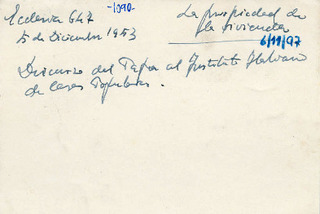 Ecclesia 647
-1090-
5 de Diciembre 1953
La propiedad de
la vivienda
6/11/97
Discurso del Papa al Instituto Italiano
de Casas Populares.